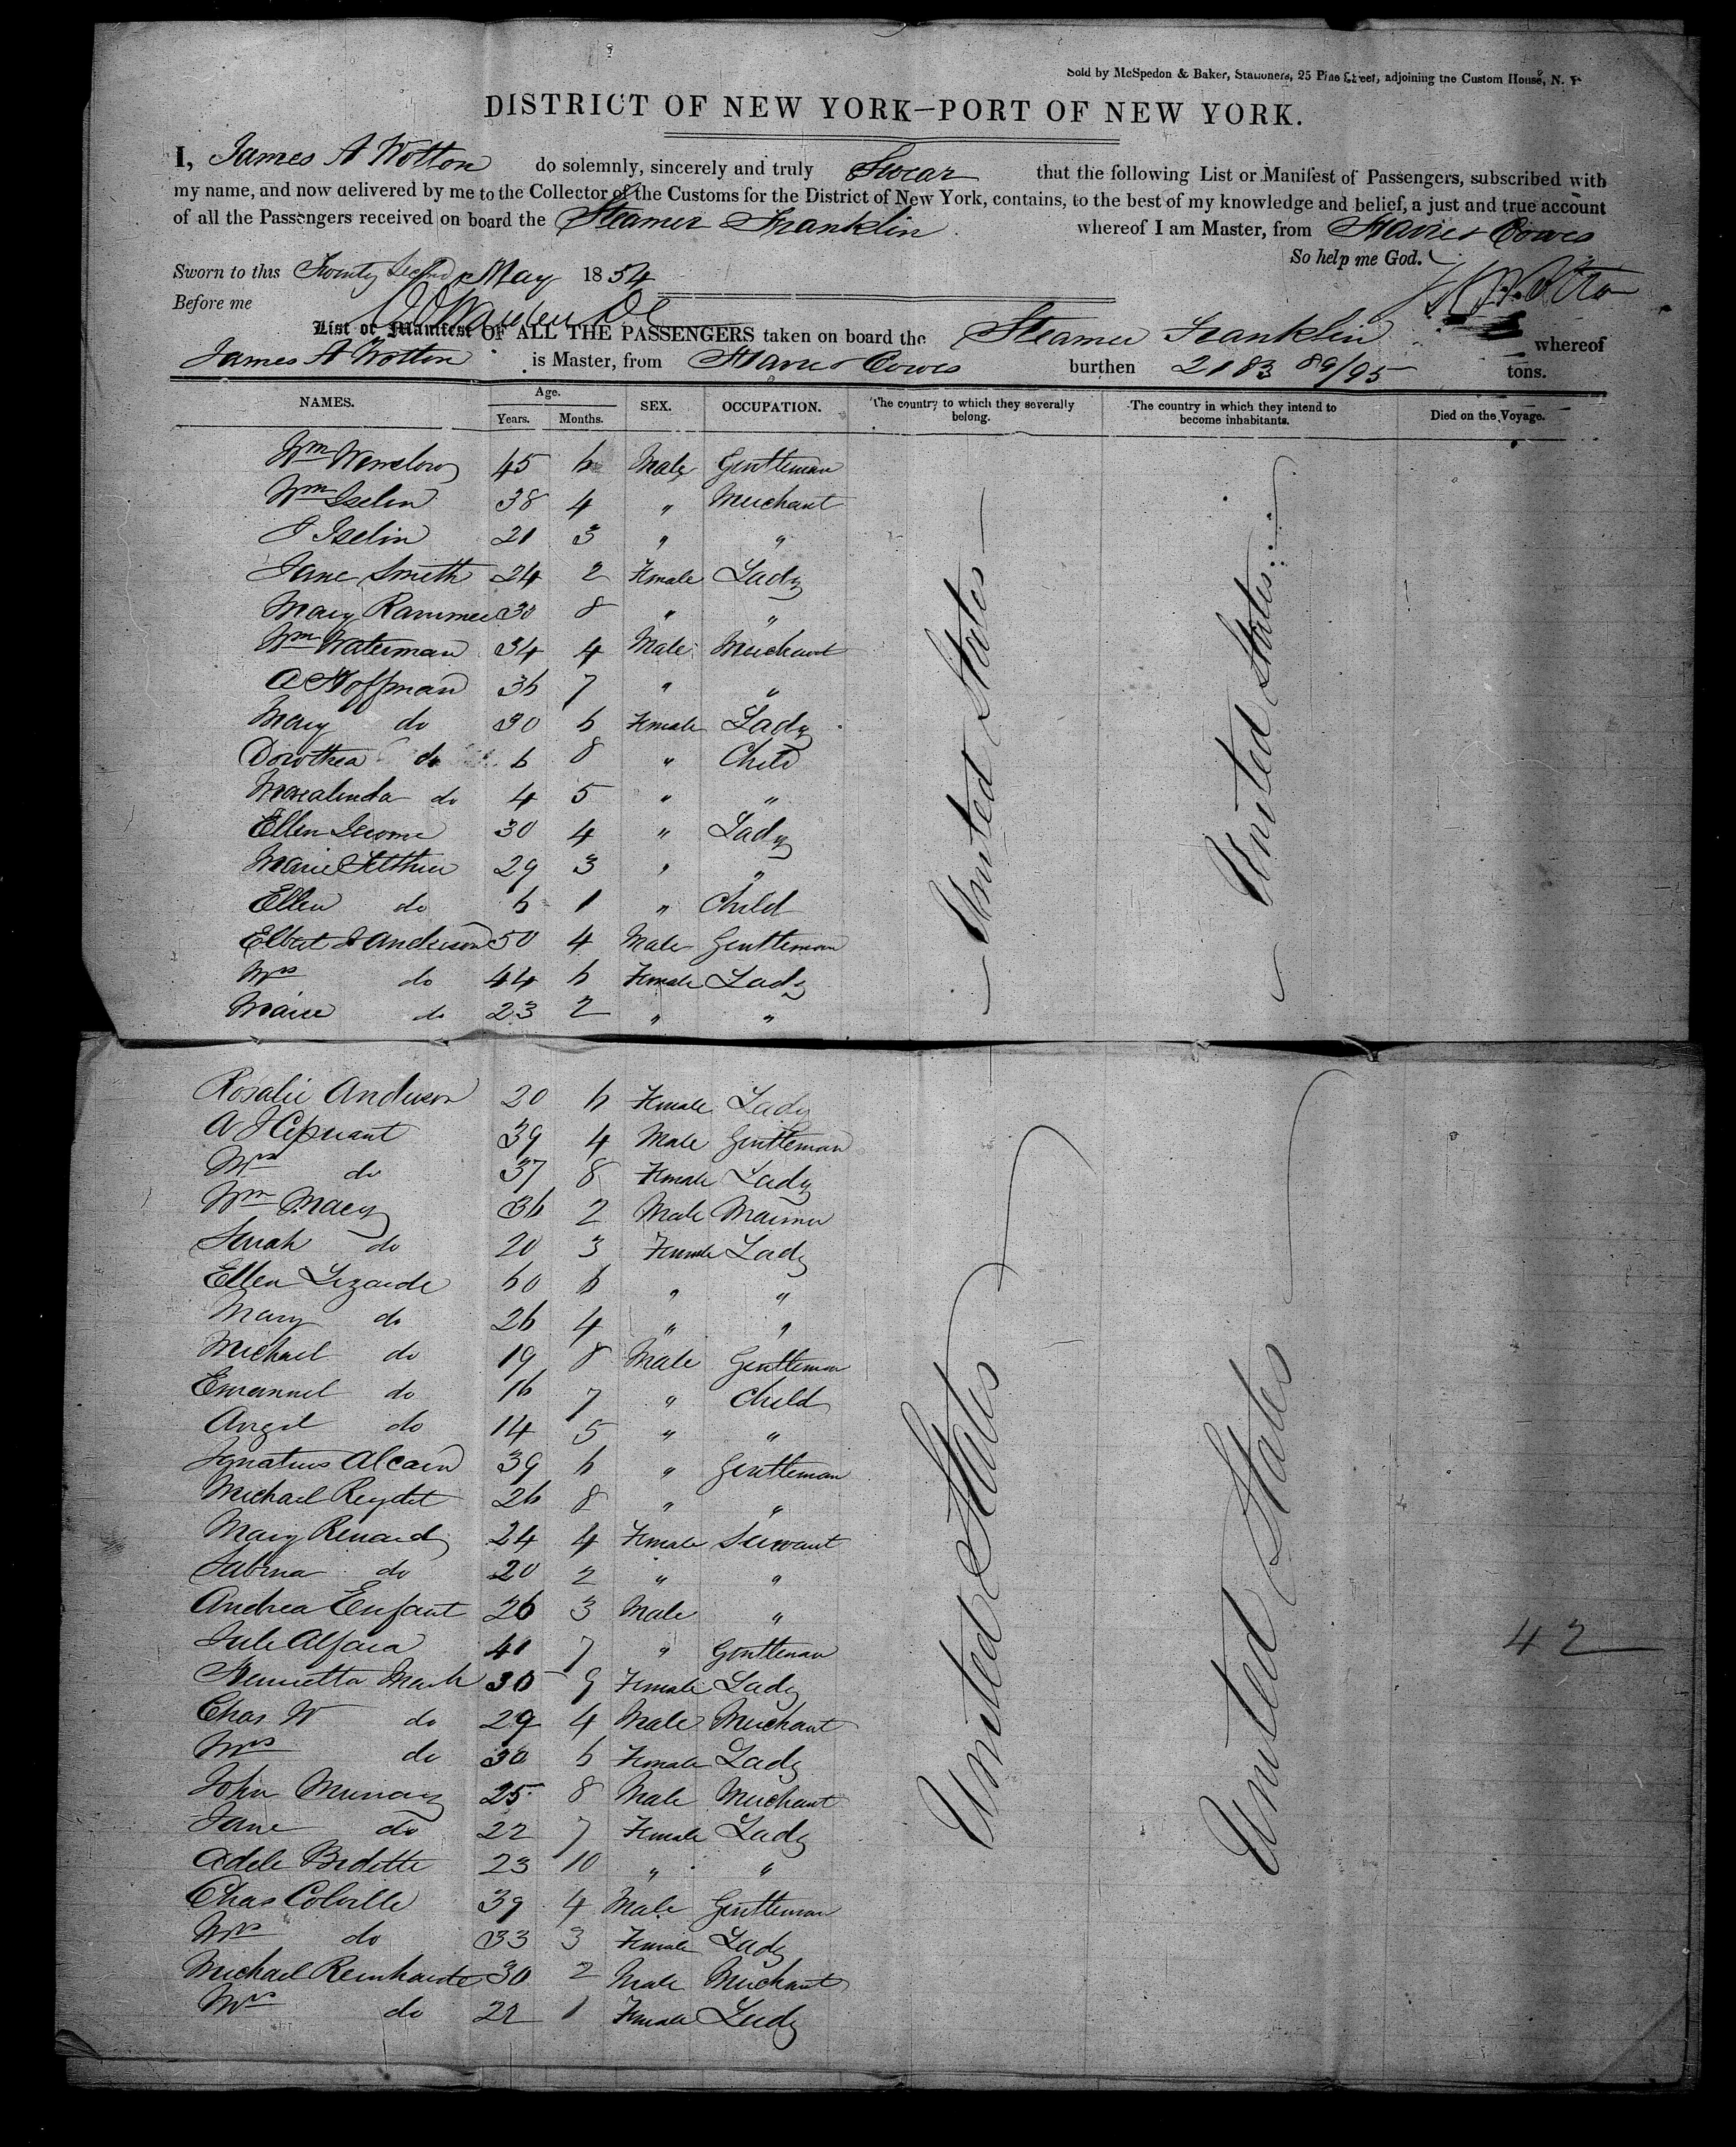 Sold by McSpedon & Baker, Stationers, 25 Pine Street, adjoining the Custom House, N. Y
DISTRICT OF NEW YORK—PORT OF NEW YORK.
I, James A Wotton do solemnly, sincerely and truly Swear that the following List or Manifest of Passengers, subscribed with
my name, and now delivered by me to the Collector of the Customs for the District of New York, contains, to the best of my knowledge and belief, a just and true account
of all the Passengers received on board the Steamer Franklin whereof I am Master, from Havre & Cowes
So help me God.
Sworn to this Twenty Second May 1854
Before me
List or Manifest OF ALL THE PASSENGERS taken on board the Steamer Franklin whereof
James A Wotton is Master, from Havre & Cowes burthen 2183 89/95 tons.
NAMES. Age. Years. Months. SEX. OCCUPATION. The country to which they severally belong. The country in which they intend to become inhabitants. Died on the Voyage.
Wm Winslow 45 6 Male Gentleman
Wm Iselin 38 4 " Merchant
J Iselin 21 3 " "
Jane Smith 24 2 Female Lady
Mary 30 8 " "
Wm Waterman 34 4 Male Merchant
A Hoffman 36 7 " "
Mary do 30 6 Female Lady
Dorothea do 6 8 " Child
do 4 5 " "
Ellen Jerome 30 4 " Lady
Marie 29 3 " "
Ellen do 6 1 " Child
Elbert J Anderson 50 4 Male Gentleman
Mrs do 44 6 Female Lady
Marie do 23 2 " "
United States United States
Rosalie Anderson 20 6 Female Lady
A J 39 4 Male Gentleman
Mrs do 37 8 Female Lady
Wm Macy 36 2 Male Mariner
Sarah do 20 3 Female Lady
Ellen 60 6 " "
Mary do 26 4 " "
Michael do 19 8 Male Gentleman
Emanuel do 16 7 " Child
Angel do 14 5 " "
Ignatius Alcain 39 6 " Gentleman
Michael 26 8 " "
Mary Renard 24 4 Female Servant
Sabina do 20 2 " "
Andrea Enfant 26 3 Male "
Jule Alfara 41 7 " Gentleman
Henrietta 30 9 Female Lady
Chas W do 29 4 Male Merchant
Mrs do 30 6 Female Lady
John Murray 25 8 Male Merchant
Jane do 22 7 Female Lady
Adele Bidette 23 10 " "
Chas Colville 39 4 Male Gentleman
Mrs do 33 3 Female Lady
Michael Reinhardt 30 2 Male Merchant
Mrs do 22 1 Female Lady
United States United States
42